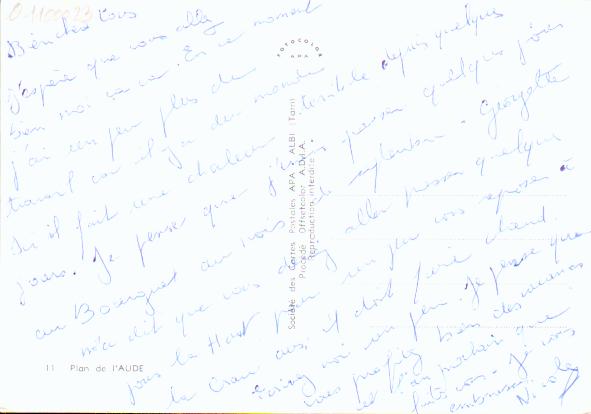 0-1100023
Bien chers tous
J'espère que vous allez
bien moi ça va. En ce moment
j'ai un peu plus de
travail car il y a du monde
Ici il fait une chaleur terrible depuis quelques
jours. Je pense que j'irais passer quelques jours
au Bousquet au mois de septembre. Georgette
m'a dit que vous deviez aller passer quelques
jours là Haut pour un peu vous reposer à
la Crau aussi il doit faire chaud.
Ecrivez moi un peu. Je pense que
vous profitez bien des vacances
et l'an prochain que
faites vous. Je vous
embrasse
Nicole
FOTOCOLOR
APA
Société des Cartes Postales APA - ALBI (Tarn)
Procédé Offsetcolor A.D.H.A.
Reproduction interdite
11 Plan de l'AUDE